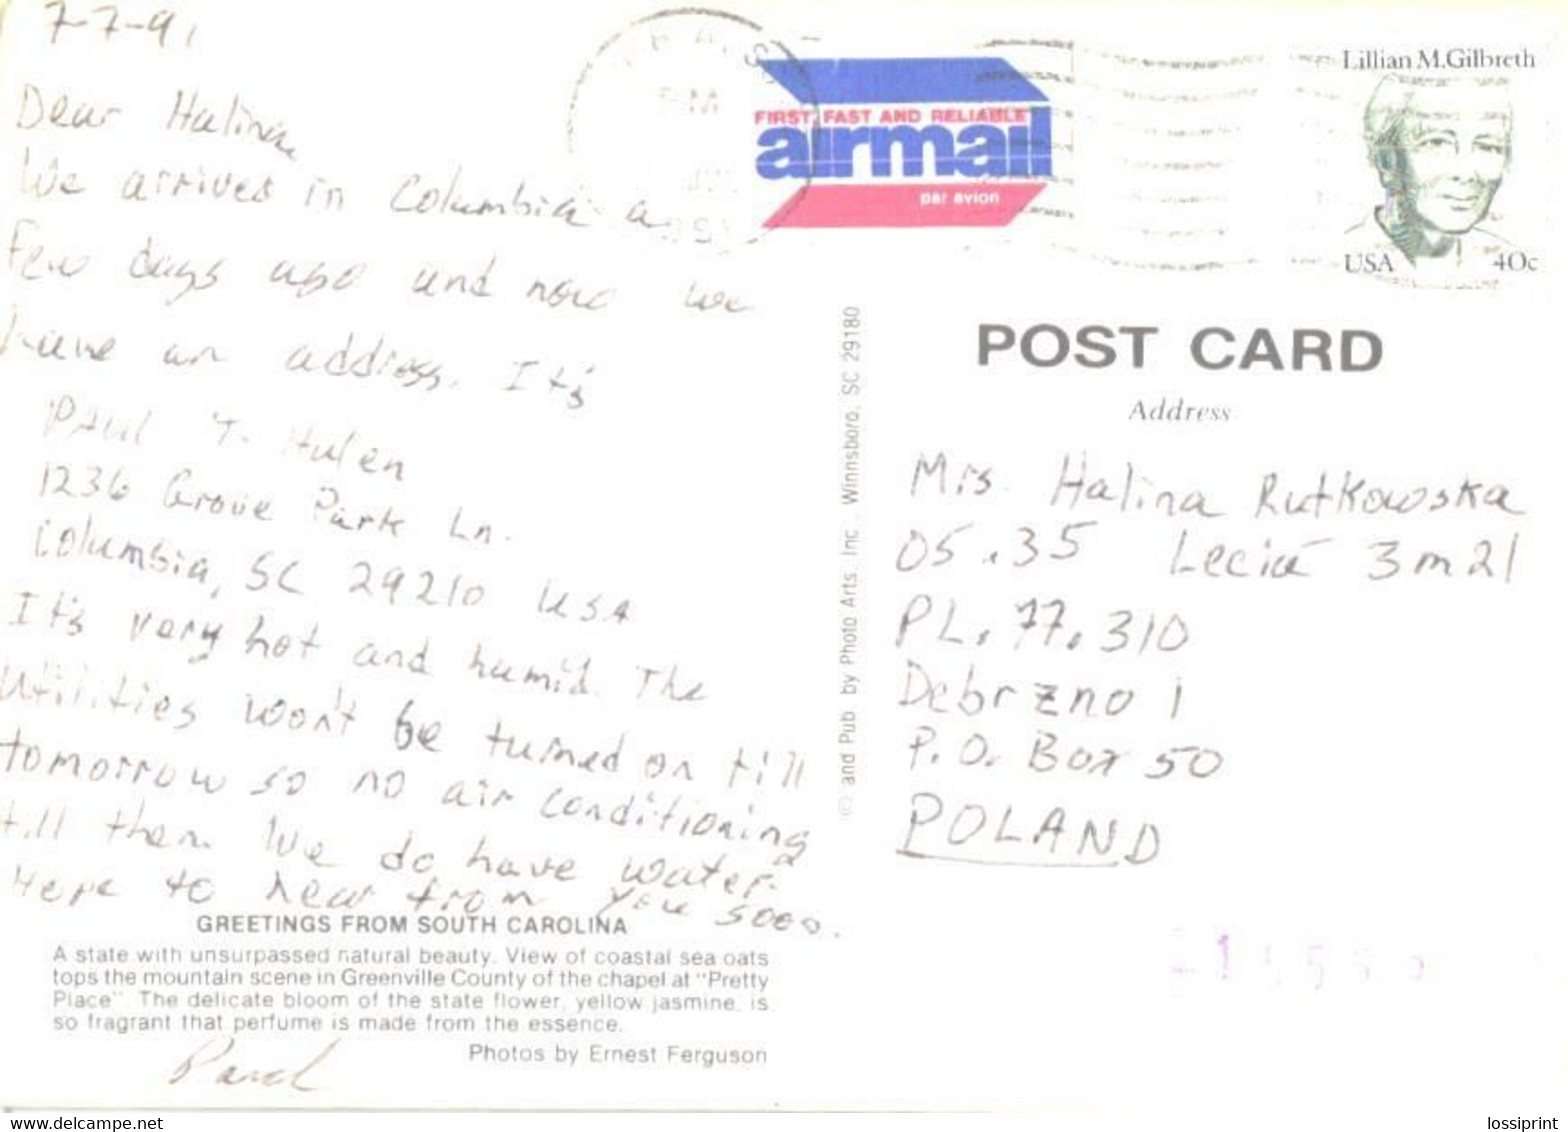 7-7-91
Dear Halina
We arrived in Columbia a
Few days ago and now we
have an address. It's
Paul T. Hulen
1236 Grove Park Ln.
Columbia, SC 29210 USA
It's very hot and humid. The
Utilities won't be turned on till
tomorrow so no air conditioning
till then. We do have water.
Hope to hear from you soon.
GREETINGS FROM SOUTH CAROLINA
A state with unsurpassed natural beauty. View of coastal sea oats
tops the mountain scene in Greenville County of the chapel at "Pretty
Place". The delicate bloom of the state flower, yellow jasmine, is
so fragrant that perfume is made from the essence.
Photos by Ernest Ferguson
Paul
© and Pub by Photo Arts, Inc Winnsboro, SC 29180
FIRST, FAST AND RELIABLE
airmail
par avion
PM
Lillian M.Gilbreth
USA 40c
POST CARD
Address
Mrs. Halina Rutkowska
OS. 35 Lecia 3 m 21
PL. 77.310
Debrzno 1
P.O. Box 50
POLAND
delcampe.net
lossiprint